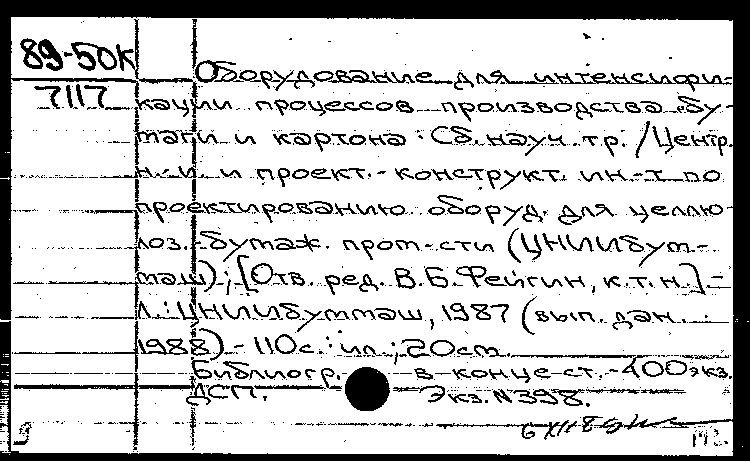 89-50К
7117
Оборудование для интенсифи-
кации процессов производства бу-
маги и картона : Сб. науч. тр. / Центр.
н.-и. и проект.-конструкт. ин.-т по
проектированию оборуд. для целлю-
лоз.-бумаж. пром-сти (ЦНИИбум-
маш); [Отв. ред. В.Б. Фейгин, к.т.н.] -
Л.: ЦНИИбуммаш, 1987 (вып. дан. :
1988) - 110с. : ил.; 20см.
Библиогр. в конце ст. - 400экз.
ДСП. Экз. N398.
9